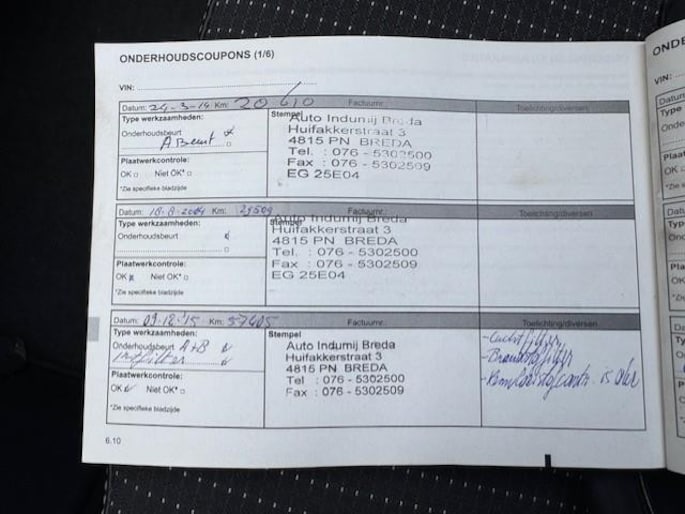 ONDERHOUDSCOUPONS (1/6)
VIN:
Datum: 24-3-14 Km: 20 610 Factuurnr.: Toelichting/diversen
Type werkzaamheden:
Onderhoudsbeurt
A Beurt
Plaatwerkcontrole:
OK Niet OK*
*Zie specifieke bladzijde
Stempel
Auto Indumij Breda
Huifakkerstraat 3
4815 PN BREDA
Tel. : 076 - 5302500
Fax : 076 - 5302509
EG 25E04
Datum: Km: 29509 Factuurnr.: Toelichting/diversen
Type werkzaamheden:
Onderhoudsbeurt
Plaatwerkcontrole:
OK Niet OK*
*Zie specifieke bladzijde
Auto Indumij Breda
Huifakkerstraat 3
4815 PN BREDA
Tel. : 076 - 5302500
Fax : 076 - 5302509
EG 25E04
Datum: 09-12-'15 Km: 57405 Factuurnr.: Toelichting/diversen
Type werkzaamheden:
Onderhoudsbeurt A+B
Plaatwerkcontrole:
OK Niet OK*
*Zie specifieke bladzijde
Stempel
Auto Indumij Breda
Huifakkerstraat 3
4815 PN BREDA
Tel : 076 - 5302500
Fax : 076 - 5302509
- Luchtfilter
- Brandstoffilter
6.10
VIN: